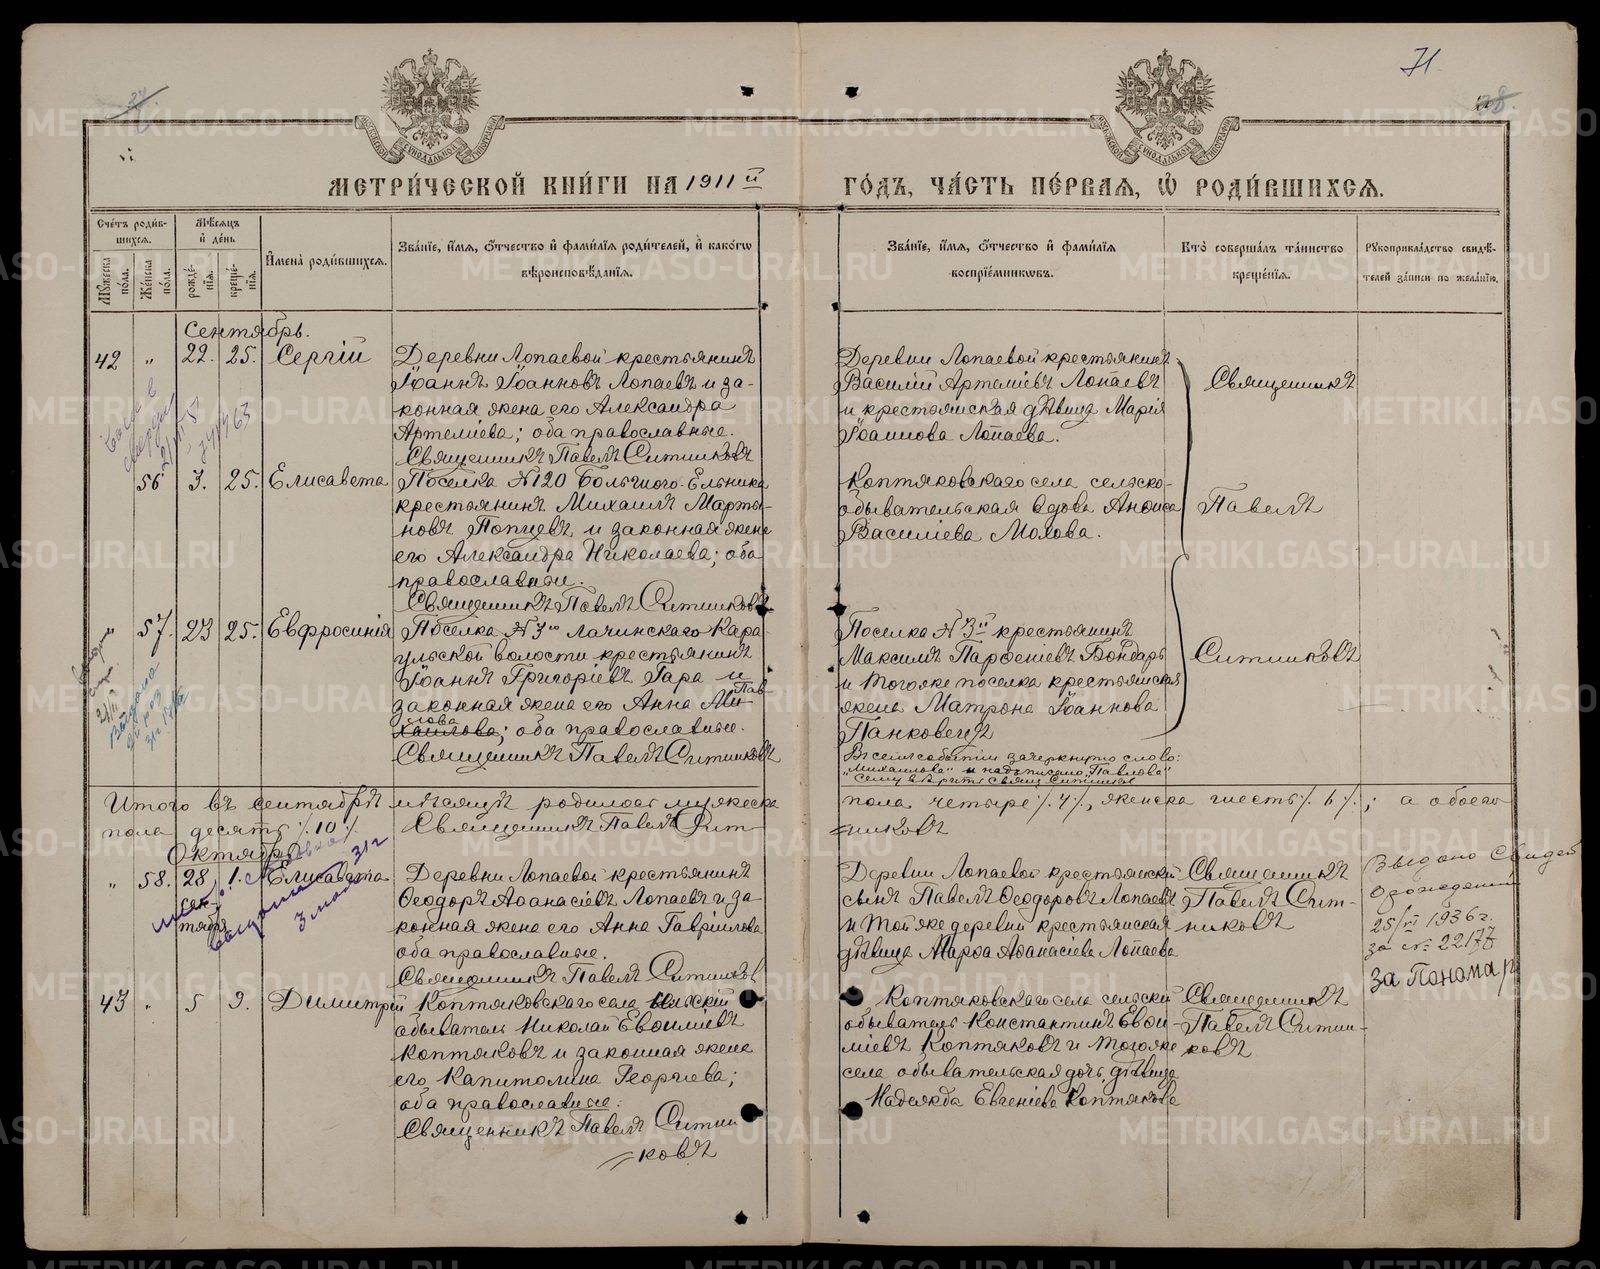 71
38.
МЕТРИ́ЧЕСКОЙ КНИ́ГИ НА 1911 й ГО́ДЪ, ЧА́СТЬ ПЕ́РВАЯ, Ѡ РОДИ́ВШИХСЯ.
Сче́тъ роди́вшихся.
Мѹ́жеска по́ла.
Же́нска по́ла.
Мѣ́сяцъ и де́нь
рожде́нїя.
креще́нїя.
И́мена̀ роди́вшихся.
Зва́нїе, и́мя, о́тчество и фами́лїя роди́телей, и како́гѡ
вѣроисповѣ́данїя.
Зва́нїе, и́мя, о́тчество и фами́лїя
воспрїе́мникѡвъ.
Кто̀ соверша́лъ та́инство
креще́нїя.
Рѹкоприкла́дство свидѣ́-
телей за́писи по жела́нїю.
Сентябрь.
42 " 22. 25. Сергій
Деревни Лопаевой крестьянинъ
Іоаннъ Іоанновъ Лопаевъ и за-
конная жена его Александра
Артеміева; оба православные.
Священникъ Павелъ Ситниковъ
Деревни Лопаевой крестьянинъ
Василій Артеміевъ Лопаевъ
и крестьянская дѣвица Марія
Іоаннова Лопаева.
Священникъ
56 3. 25. Елисавета
Поселка №120 Большого-Ельника
крестьянинъ Михаилъ Марты-
новъ и законная жена
его Александра Николаева; оба
православные.
Священникъ Павелъ Ситниковъ
Коптяковскаго села сельско-
обывательская вдова Анѳиса
Василіева Мохова.
Павелъ
57. 23 25. Евфросинія
Поселка №3го Лачинскаго Кара-
ульской волости крестьянинъ
Іоаннъ Григоріевъ Гара и
законная жена его Анна Ми- Пав-
хаилова лова; оба православные.
Священникъ Павелъ Ситниковъ
Поселка №3й крестьянинъ
Максимъ Парѳеніевъ Бондарь
и тогоже поселка крестьянская
жена Матрона Іоаннова
Панковецъ
Ситниковъ
Въ семъ событіи зачеркнуто слово:
"Михаилова" и надписано "Павлова"
Выдана
Итого въ сентябрѣ мѣсяцѣ родилось мужеска пола четыре /.4/., женска шесть /.6/.; а обоего
пола десять /.10./. Священникъ Павелъ Сит-
никовъ
Октябрь
" 58. 28 сен-тября 1. Елисавета
Деревни Лопаевой крестьянинъ
Ѳеодоръ Аѳанасіевъ Лопаевъ и за-
конная жена его Анна Гавріилова
оба православные.
Священникъ Павелъ Ситниковъ
Деревни Лопаевой крестьянскій
сынъ Павелъ Ѳеодоровъ Лопаевъ
и той же деревни крестьянская
дѣвица Марѳа Аѳанасіева Лопаева
Священникъ
Павелъ Сит-
никовъ
Выдано свидет
о рождении
25/VI 1936 г.
за № 22177
За Пономар
выдана 3 мая 31 г
43 " 5 9. Димитрій
Коптяковскаго села сельскій
обыватель Николай Евѳиміевъ
Коптяковъ и законная жена
его Капитолина Георгіева;
оба православные.
Священникъ Павелъ Ситни-
ковъ
Коптяковскаго села сельскій
обыватель Константинъ Евѳи-
міевъ Коптяковъ и тогоже
села обывательская дочь, дѣвица
Надежда Евгеніева Коптякова
Священникъ
Павелъ Ситни-
ковъ
METRIKI.GASO-URAL.RU